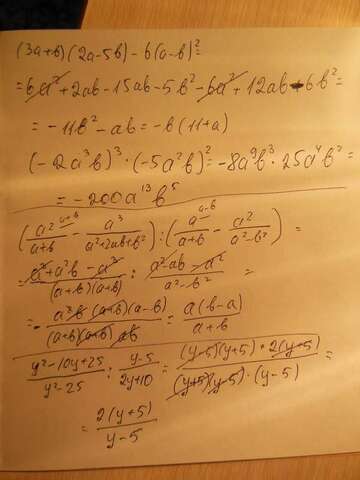 (3a+b)(2a-5b)-6(a-b)²=
=6a²+2ab-15ab-5b²-6a²+12ab-6b²=
=-11b²-ab=-b(11+a)
(-2a³b)³·(-5a²b)²=-8a⁹b³·25a⁴b²=
=-200a¹³b⁵
(a²/(a+b) - a³/(a²+2ab+b²)) : (a/(a+b) - a²/(a²-b²)) =
=(a³+a²b-a³)/((a+b)(a+b)) : (a²-ab-a²)/(a²-b²) =
=-(a²b(a+b)(a-b))/((a+b)(a+b)ab) = a(b-a)/(a+b)
(y²-10y+25)/(y²-25) : (y-5)/(2y+10) = ((y-5)(y+5)·2(y+5))/((y+5)(y-5)·(y-5)) =
=2(y+5)/(y-5)